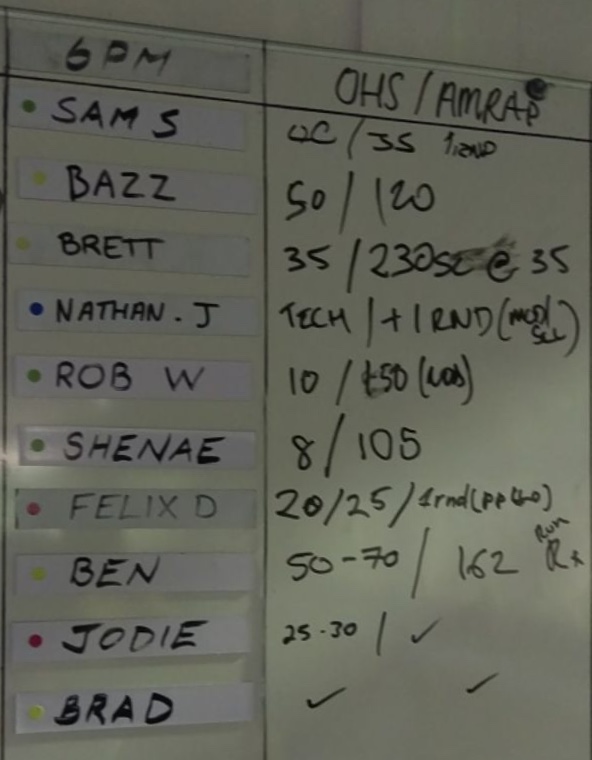 6PM OHS / AMRAP
SAM S 35 1 RND
BAZZ 50 / 120
BRETT 35 / 230 @ 35
NATHAN. J TECH / + 1 RND
ROB W 10 / +50
SHENAE 8 / 105
FELIX D 20/25 / 1rnd
BEN 50-70 / 162 Run Rx
JODIE 25-30 / ✓
BRAD ✓ ✓